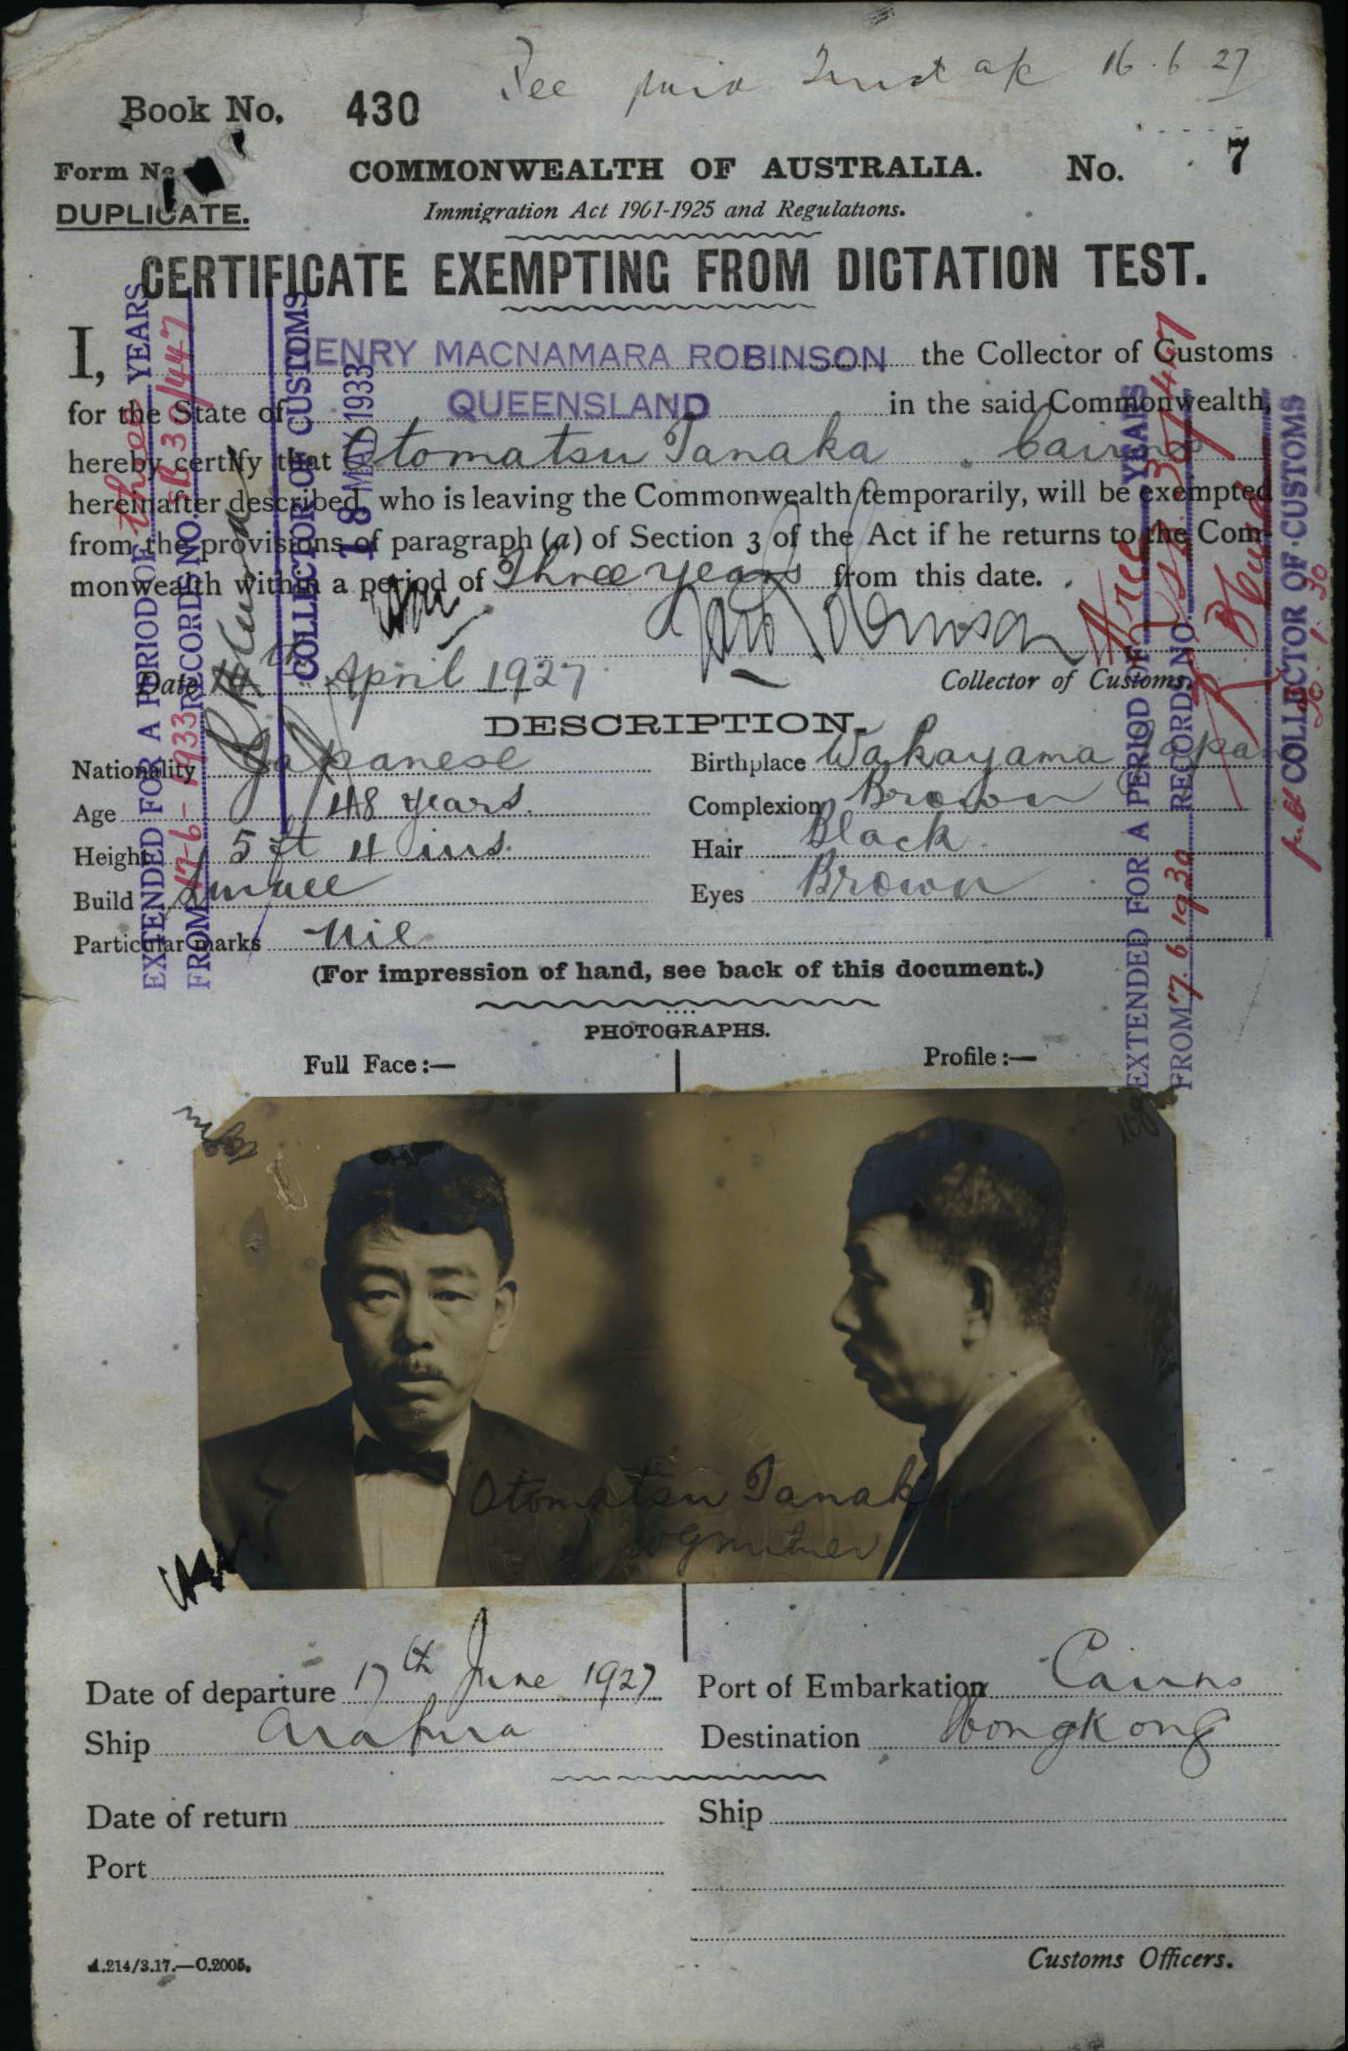 Fee paid Trust a/c 16.6.27
Book No. 430
Form No.
DUPLICATE.
COMMONWEALTH OF AUSTRALIA.
No. 7
Immigration Act 1901-1925 and Regulations.
CERTIFICATE EXEMPTING FROM DICTATION TEST.
I, HENRY MACNAMARA ROBINSON the Collector of Customs
for the State of QUEENSLAND in the said Commonwealth,
hereby certify that Otomatsu Tanaka Cairns
hereinafter described, who is leaving the Commonwealth temporarily, will be exempted
from the provisions of paragraph (a) of Section 3 of the Act if he returns to the Com-
monwealth within a period of Three years from this date.
Date 14th April 1927
Collector of Customs.
EXTENDED FOR A PERIOD OF three YEARS
FROM 17-6-1933 RECORDS NO.
COLLECTOR OF CUSTOMS
18 MAY 1933
EXTENDED FOR A PERIOD OF three YEARS
FROM 17.6.1930 RECORDS NO.
COLLECTOR OF CUSTOMS
DESCRIPTION.
Nationality Japanese
Birthplace Wakayama Japan
Age 48 years.
Complexion Brown
Height 5 ft 4 ins.
Hair Black
Build Small
Eyes Brown
Particular marks Nil
(For impression of hand, see back of this document.)
PHOTOGRAPHS.
Full Face:—
Profile:—
Otomatsu Tanaka
Date of departure 17th June 1927
Port of Embarkation Cairns
Ship Arafura
Destination Hongkong
Date of return
Ship
Port
A.214/3.17.—C.2005.
Customs Officers.